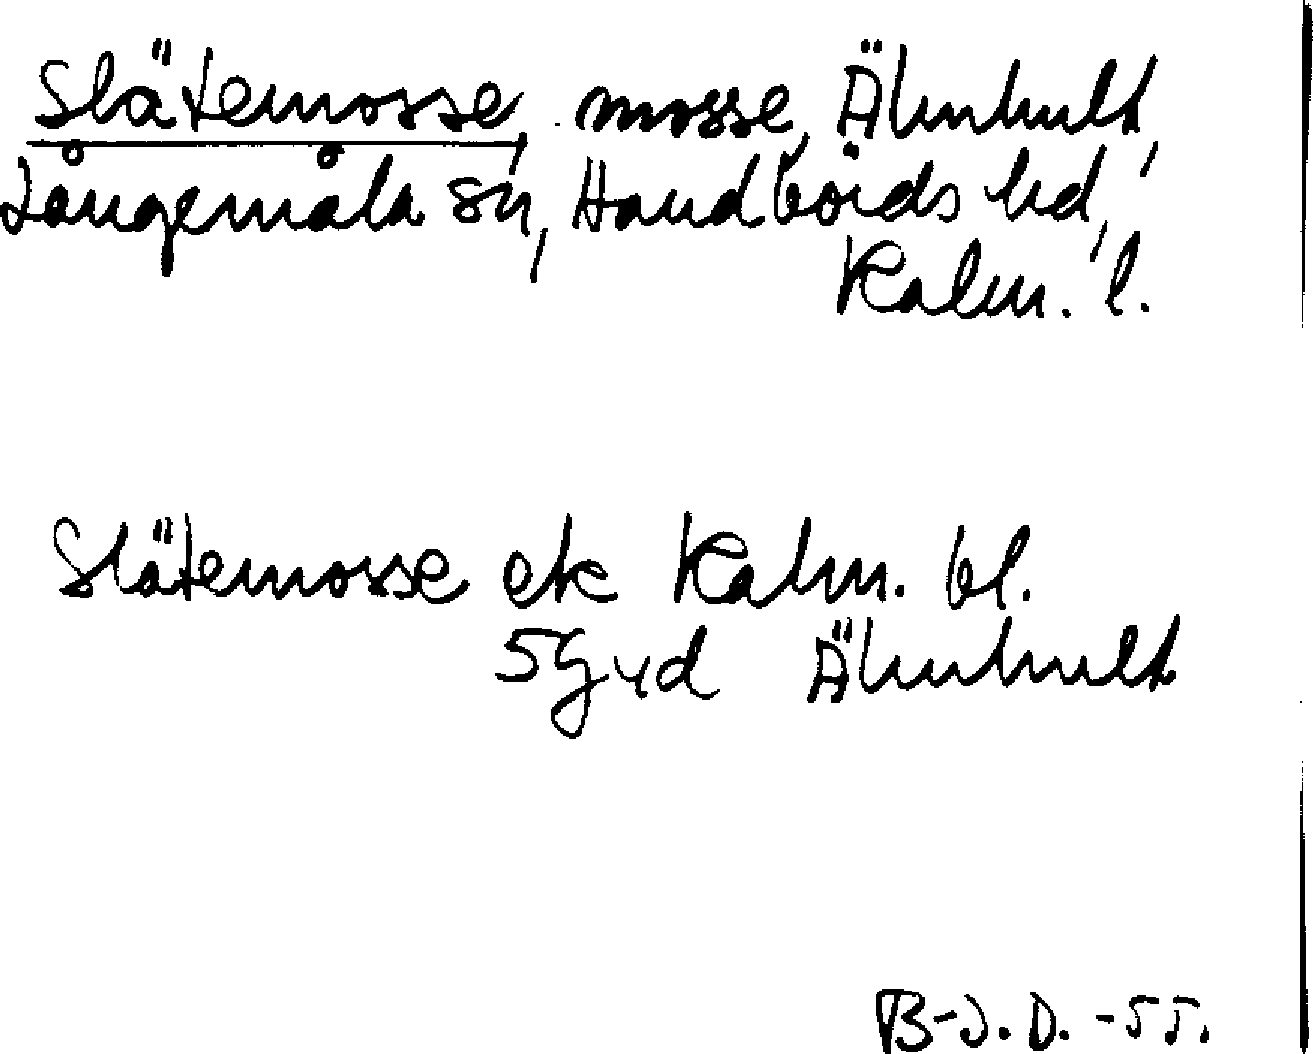 Slätemosse, mosse, Älmhult,
Långemåla sn, Handbörds hd,
Kalm. l.
Slätemosse ek Kalm. bl.
5G yd Älmhult
B-J.D. -55.